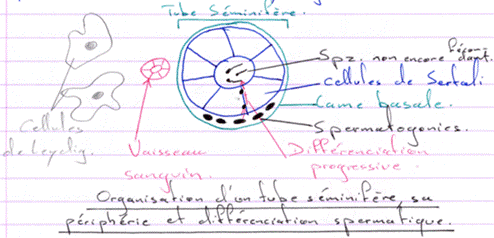 Tube Séminifère.
Spz. non encore fécondant.
Cellules de Sertoli
Lame basale.
Spermatogonies.
Différenciation
progressive.
Cellules
de Leydig.
Vaisseau
sanguin.
Organisation d'un tube séminifère, sa
périphérie et différenciation spermatique.